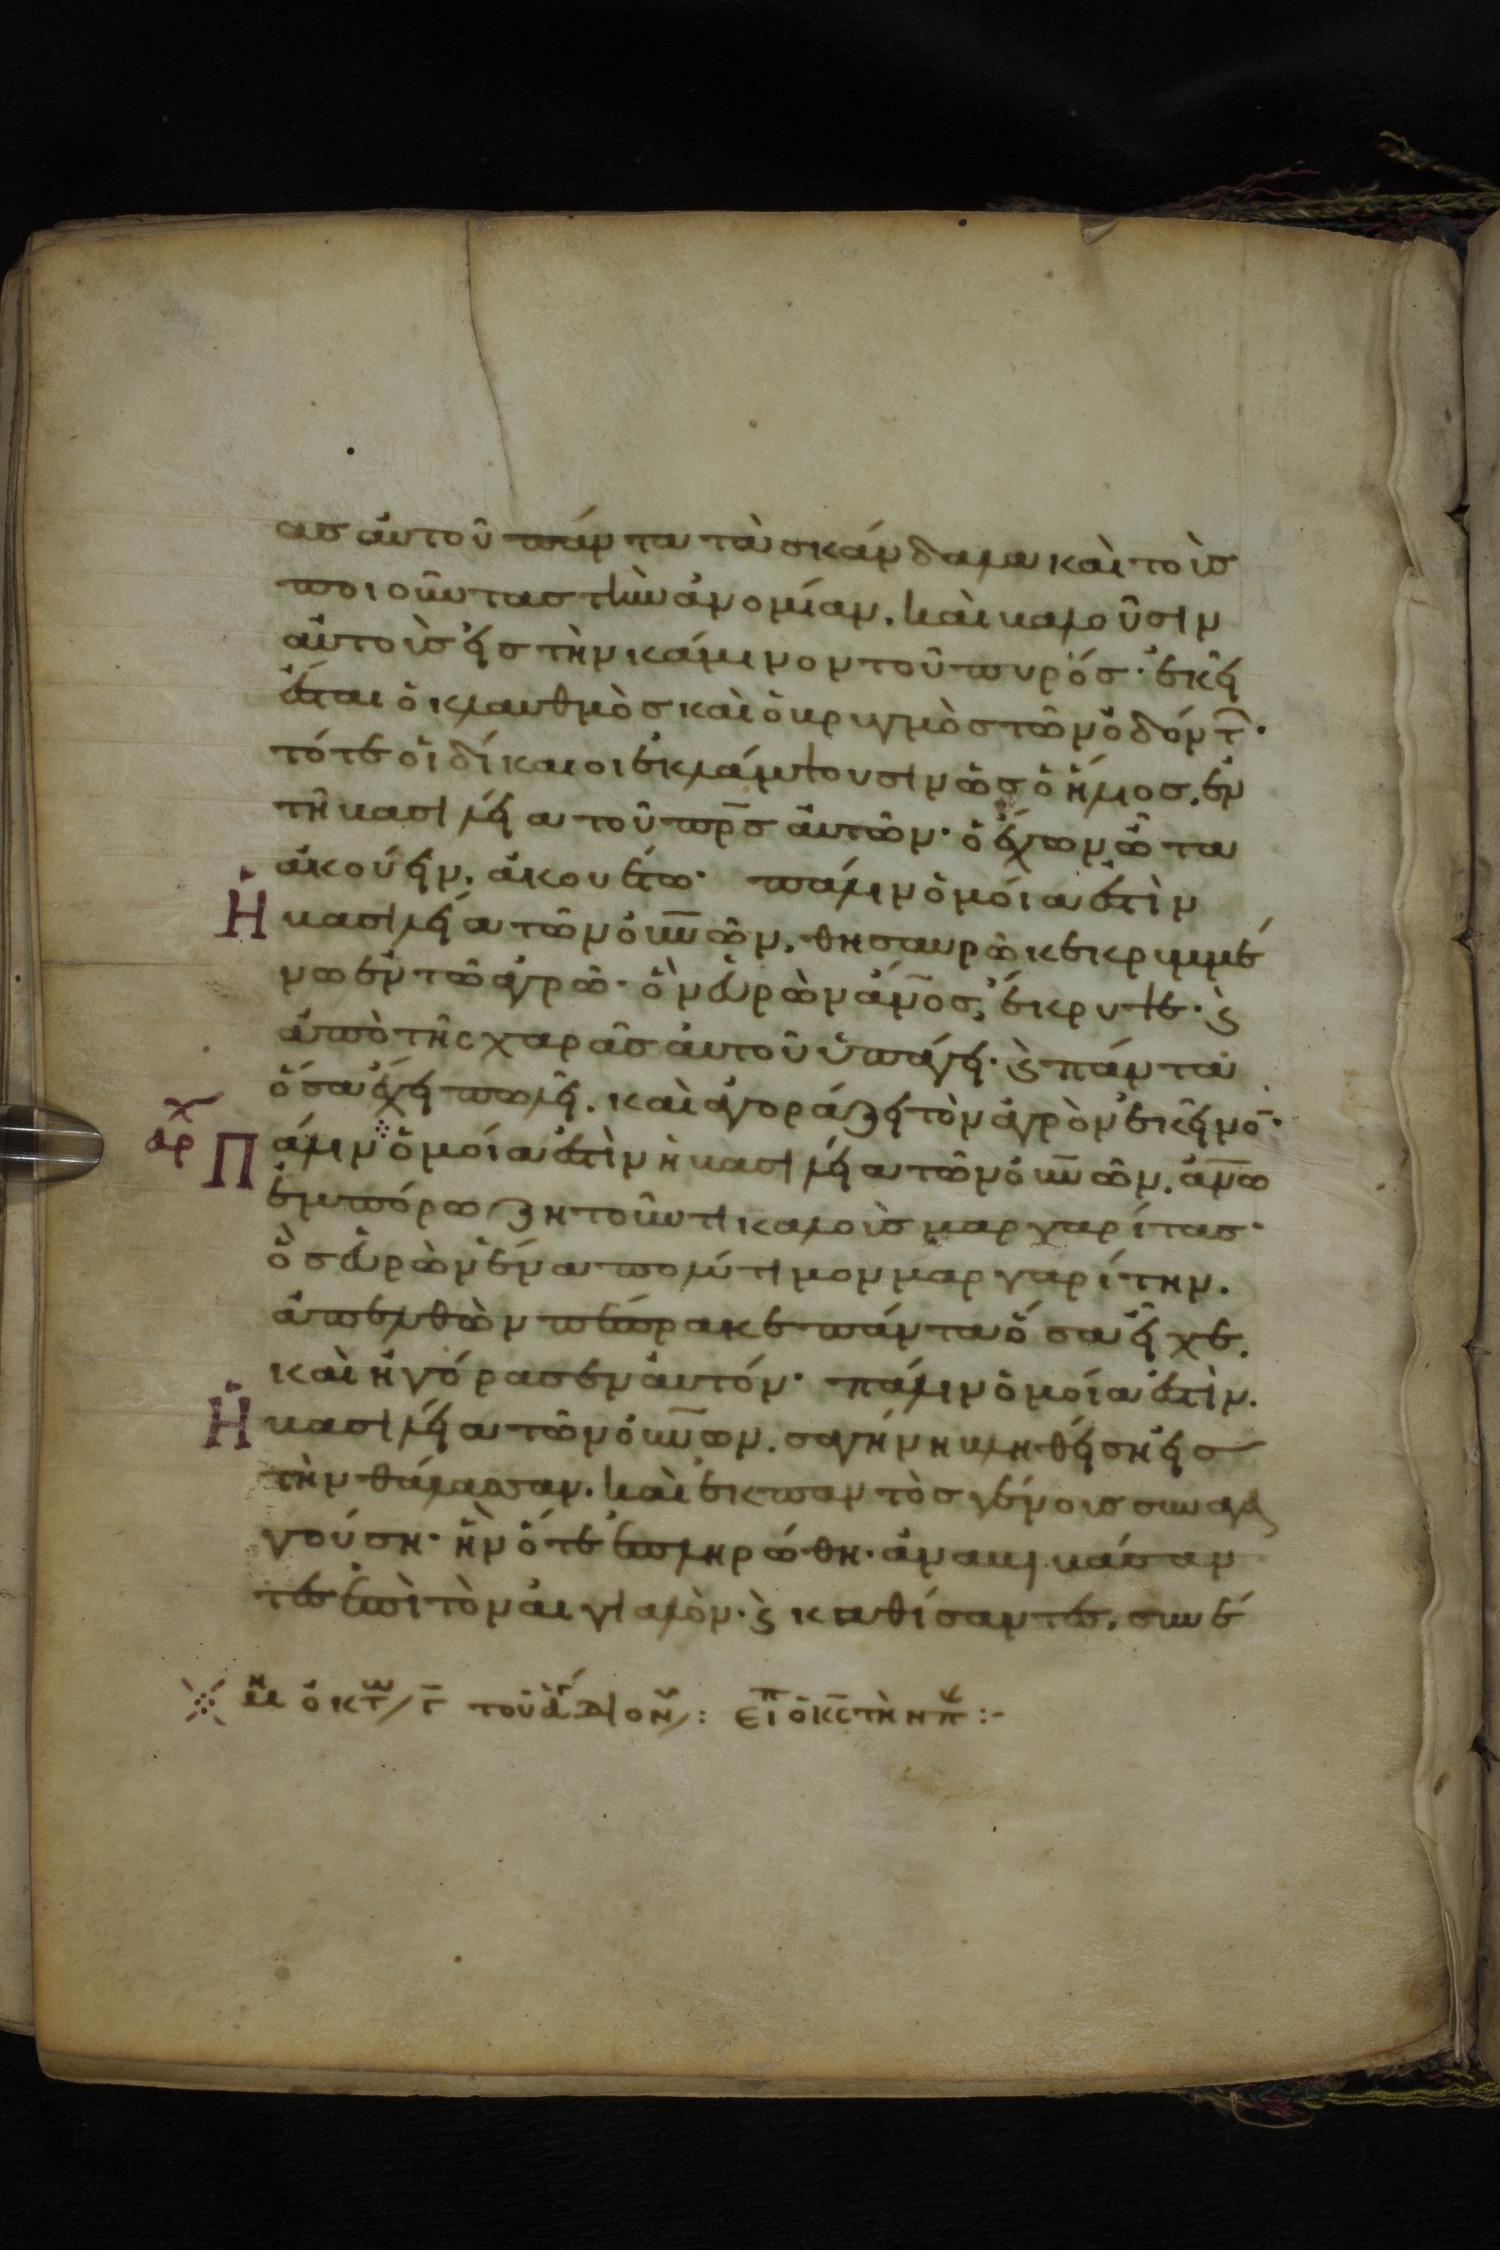 ασ αὐτοῦ πάντα τὰ σκάνδαλα καὶ τοὺσ
ποιοῦντασ τὴν ἀνομίαν. καὶ βαλοῦσιν
αὐτοὺσ εἰσ τὴν κάμινον τοῦ πυρόσ· ἐκεῖ
ἔσται ὁ κλαυθμὸσ καὶ ὁ βρυγμὸσ τῶν ὀδόντ̅·
τότε οἱ δίκαιοι ἐκλάμψουσιν ὡσ ὁ ἥλιοσ. ἐν
τῆ βασιλεία τοῦ πρ̅σ αὐτῶν· ὁ ἔχων ὦτα
ἀκούειν. ἀκουέτω· πάλιν ὁμοία ἐστὶν
Ἡ βασιλεία τῶν οὐν̅ῶν. θησαυρῶ κεκρυμμέ
νω ἐν τῶ ἀγρῶ· ὃν εὑρὼν ἄν̅οσ, ἔκρυψε· ϛ
ἀπὸ τῆς χαρᾶσ αὐτοῦ ὑπάγει· ϛ πάντα
ὅσα ἔχει πωλεῖ. καὶ ἀγοράζει τὸν ἀγρὸν ἐκεῖνο̅·
ἀρχ Πάλιν ὁμοία ἐστὶν ἡ βασιλεία τῶν οὐν̅ῶν. ἀν̅ω
ἐμπόρω ζητοῦντι καλοὺσ μαργαρίτασ·
ὃσ εὑρὼν ἕνα πολύτιμον μαργαρίτην.
ἀπελθὼν πέπρακε πάντα ὅσα εἶχε.
καὶ ἠγόρασεν αὐτόν· πάλιν ὁμοία ἐστὶν.
Ἡ βασιλεία τῶν οὐν̅ων. σαγήνη βληθείση εἰσ
τὴν θάλασσαν. καὶ ἐκ παντὸσ γένουσ συναγα
γούση· ἣν ὅτε ἐπληρώθη. ἀναβιβάσαν
τεσ ἐπὶ τὸν αἰγιαλὸν· ϛ καθίσαντεσ. συνέ